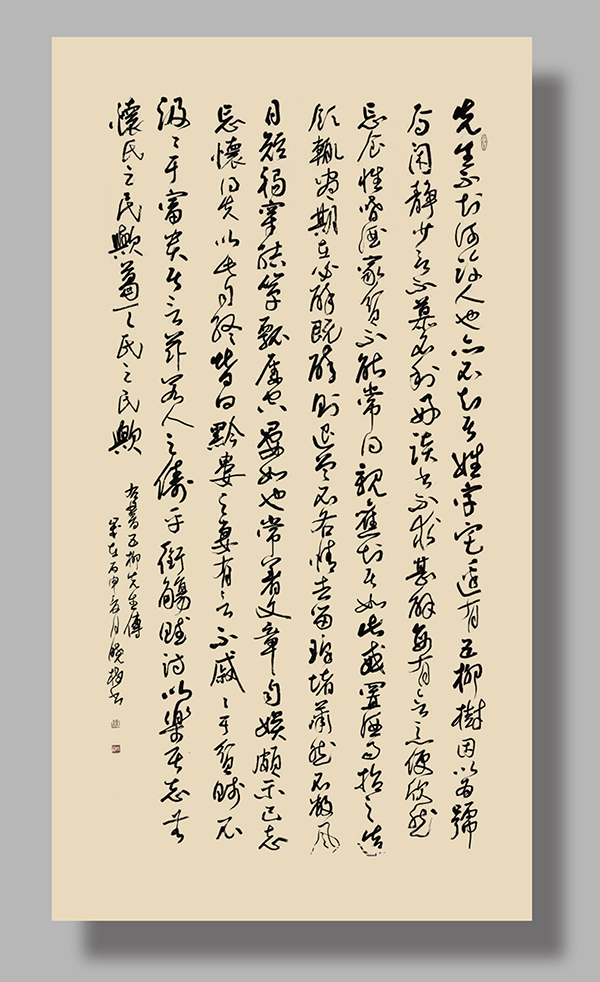 先生不知何许人也亦不知其姓字宅邊有五柳樹因以為號
焉闲靜少言不慕名利好读书不求甚解每有会意便欣然
忘食性嗜酒家贫不能常得親舊知其如此或置酒而招之造
飲輒盡期在必醉既醉則退曾不吝情去留環堵蕭然不蔽風
日短褐穿結箪瓢屢空晏如也常著文章自娱頗示己志
忘懷得失以此自終贊曰黔婁之妻有言不戚〻于贫賤不
汲〻于富贵其言兹若人之儔乎銜觴賦诗以樂其志无
懷氏之民歟葛天氏之民歟
右書五柳先生傳
歲在丙申 月曉 书